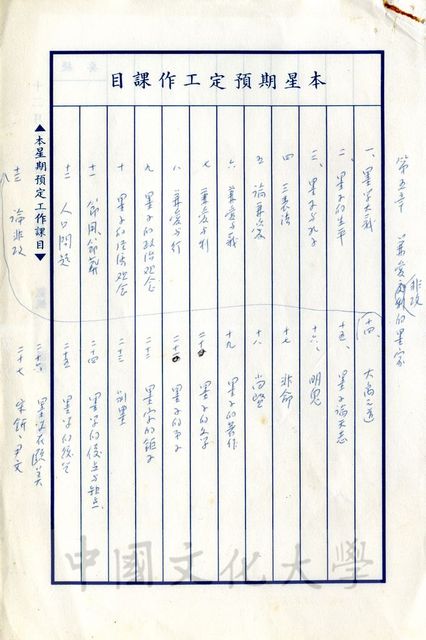 本星期預定工作課目
第五章 兼愛非攻的墨家
一、墨學大義
二、墨子的生平
三、墨子與孔子
四 三表法
五 論兼愛
六 兼愛與義
七 兼愛與利
八 兼愛與行
九 墨子的政治观念
十 墨子的經濟观念
十一 節用、節葬
十二 人口問題
十三 論非攻
十四、大禹之道
十五、墨子論天志
十六、明鬼
十七 非命
十八 尚賢
十九 墨子的著作
二十 墨子的文字
二十一 墨子的弟子
二十二 墨家的鉅子
二十三 別墨
二十四 墨學的優点与缺点
二十五 墨學的後世
二十六 墨學在歐美
二十七 宋鈃、尹文
▲本星期預定工作課目▼
中國文化大學